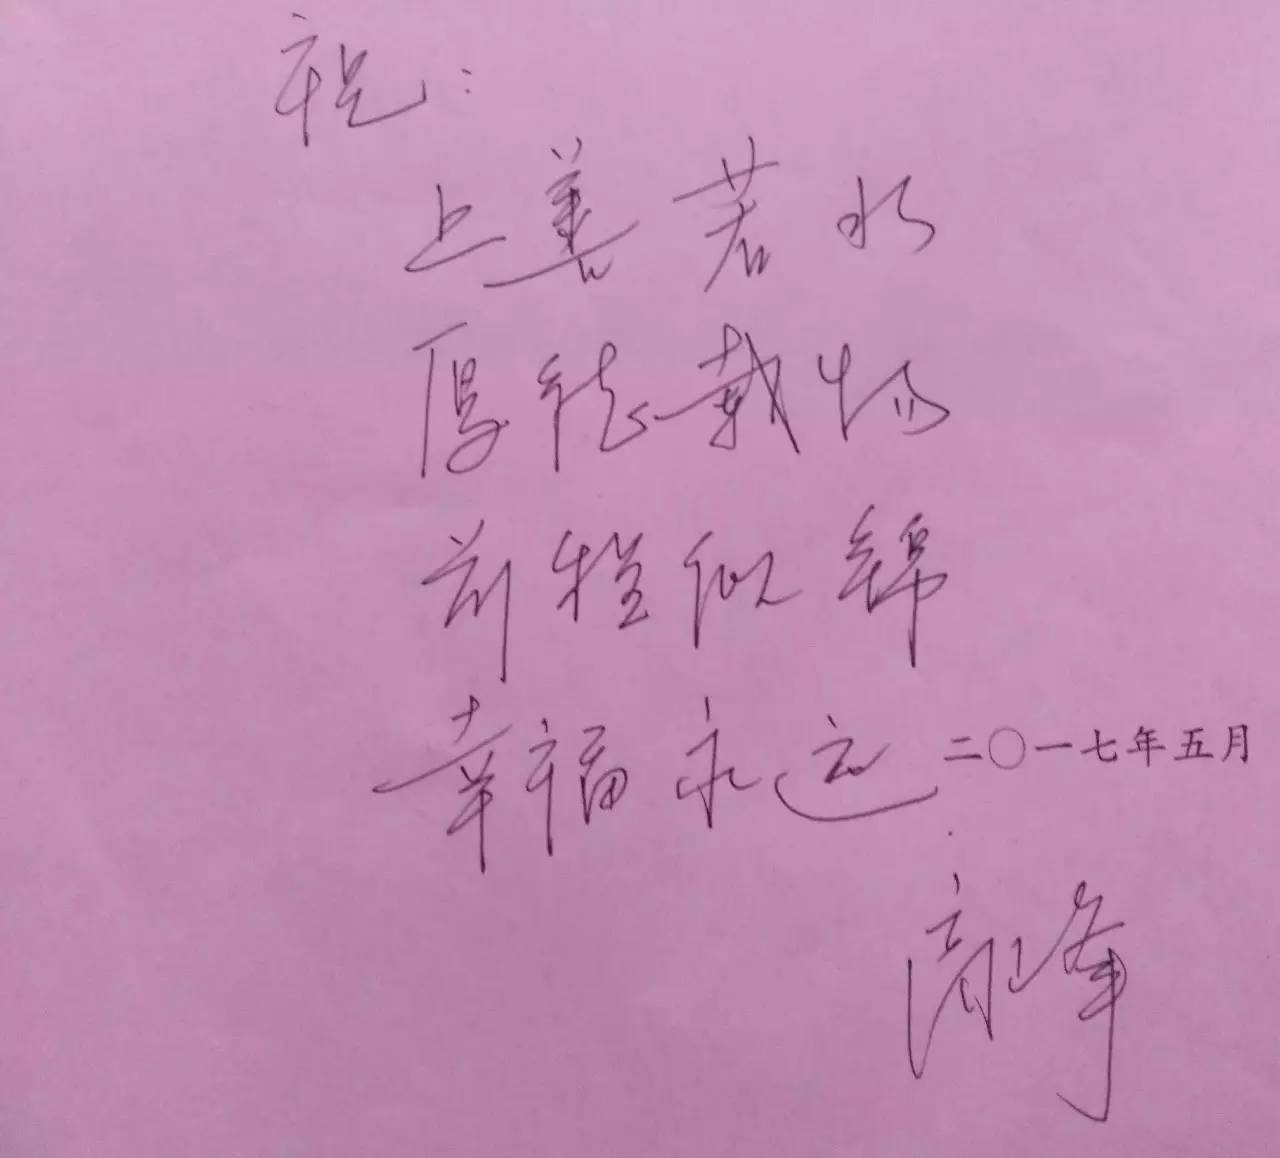 祝：
上善若水
厚德载物
前程似锦
幸福永远
二〇一七年五月
高峰